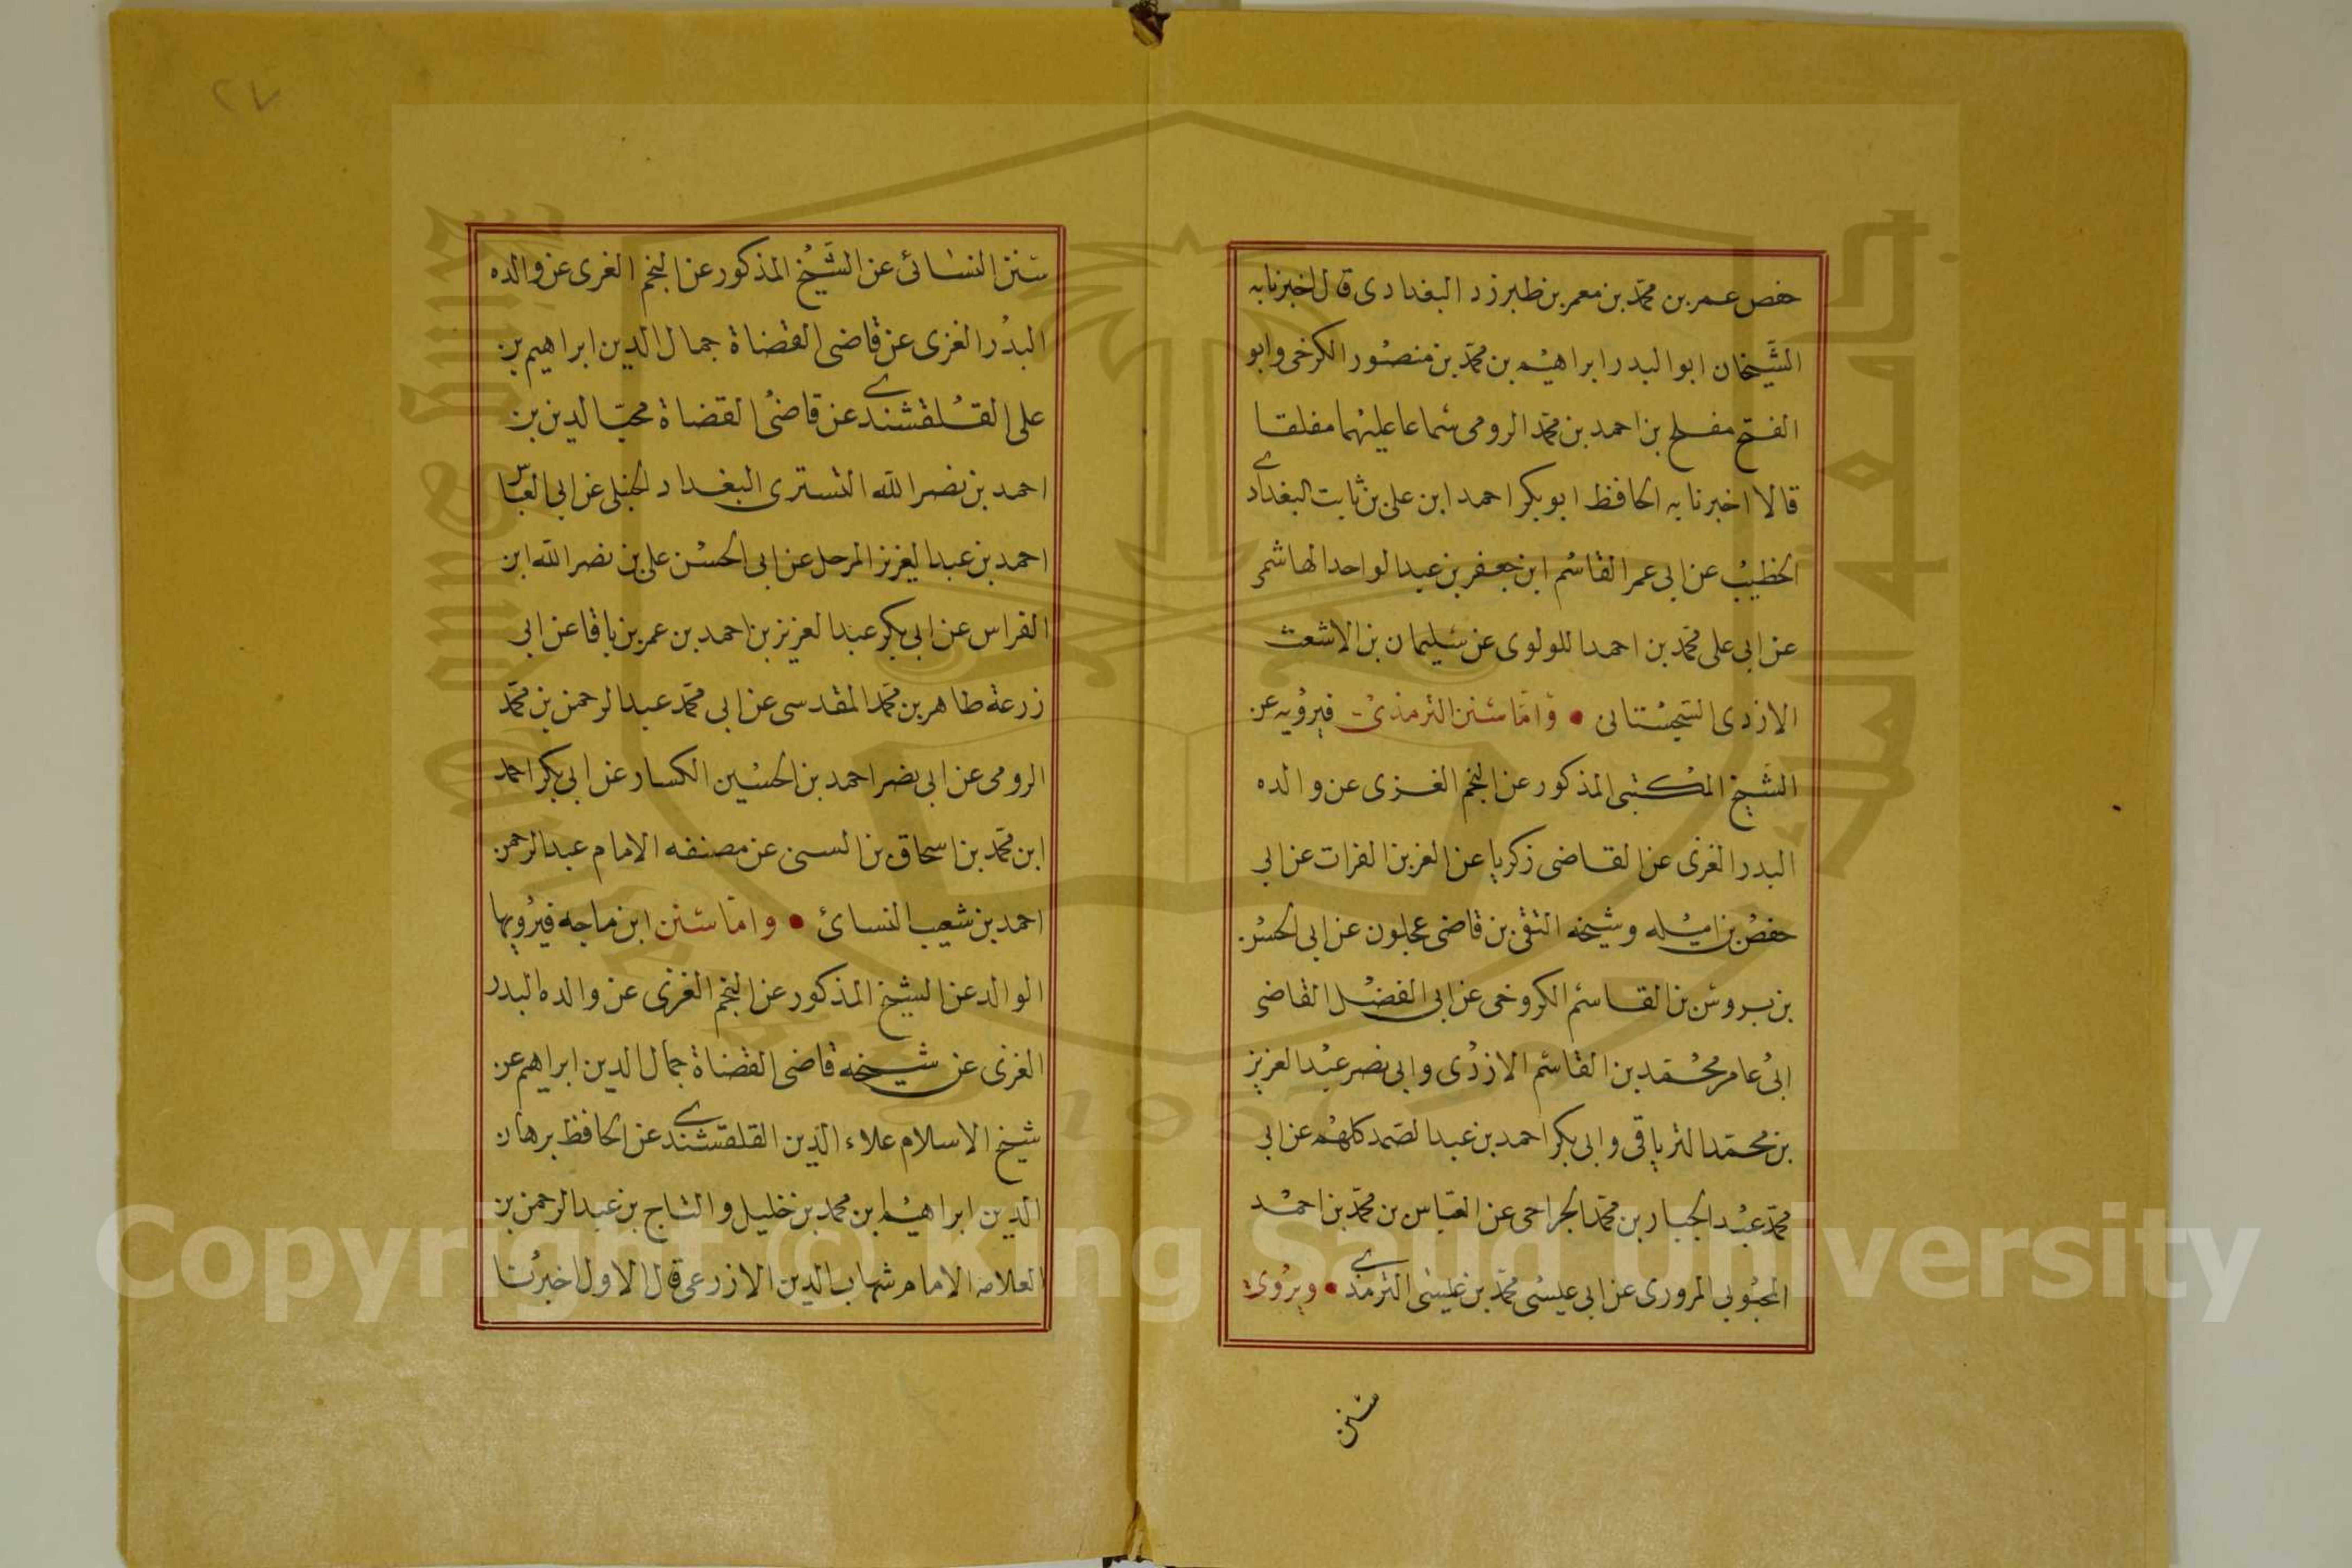 حفص عمر بن محمد بن معمر بن طبرزد البغدادى قال اخبرنا به
الشَّيخان ابو البدر ابراهيم بن محمد بن منصور الكرخى وابو
الفتح مفلح بن احمد بن محمد الرومى سماعا عليهما مفلقا
قالا اخبرنا به الحافظ ابو بكر احمد ابن على بن ثابت البغدادى
الخطيب عن ابى عمر القاسم ابن جعفر بن عبد الواحد الهاشمى
عن ابى على محمد بن احمد اللولوى عن سليمان بن الاشعث
الازدى السجستانى • واما سنن الترمذى فيرويه عن
الشيخ المكتبى المذكور عن النجم الغزى عن والده
البدر الغزى عن القاضى زكريا عن العز بن الفرات عن ابى
حفص بن اميله وشيخه التقى بن قاضى عجلون عن ابى الحسن
بن بروس بن القاسم الكروخى عن ابى الفضل القاضى
ابى عامر محمد بن القاسم الازدى وابى نصر عبد العزيز
بن محمد الترياقى وابى بكر احمد بن عبد الصمد كلهم عن ابى
محمد عبد الجبار بن محمد الجراحى عن العباس بن محمد بن احمد
المحبوبى المروزى عن ابى عيسى محمد بن عيسى الترمذى • ويروى
سنن
سنن النسائى عن الشيخ المذكور عن النجم الغزى عن والده
البدر الغزى عن قاضى القضاة جمال الدين ابراهيم بن
على القلقشندى عن قاضى القضاة محب الدين بن
احمد بن نصر الله التسترى البغداد الحنبلى عن ابى العباس
احمد بن عبد العزيز المرحل عن ابى الحسن على بن نصر الله ابن
الفراس عن ابى بكر عبد العزيز بن احمد بن عمر بن باقا عن ابى
زرعة طاهر بن محمد المقدسى عن ابى محمد عبد الرحمن بن محمد
الرومى عن ابى نصر احمد بن الحسين الكسار عن ابى بكر احمد
ابن محمد بن اسحاق بن السنى عن مصنفه الامام عبد الرحمن
احمد بن شعيب النسائ • واما سنن ابن ماجه فيرويها
الوالد عن الشيخ المذكور عن النجم الغزى عن والده البدر
الغزى عن شيخه قاضى القضاة جمال الدين ابراهيم عن
شيخ الاسلام علاء الدين القلقشندى عن الحافظ برهان
الدين ابراهيم بن محمد بن خليل والتاج بن عبد الرحمن بن
العلامه الامام شهاب الدين الازرعى قال الاول اخبرنا
٢٧
Copyright © King Saud University
1957